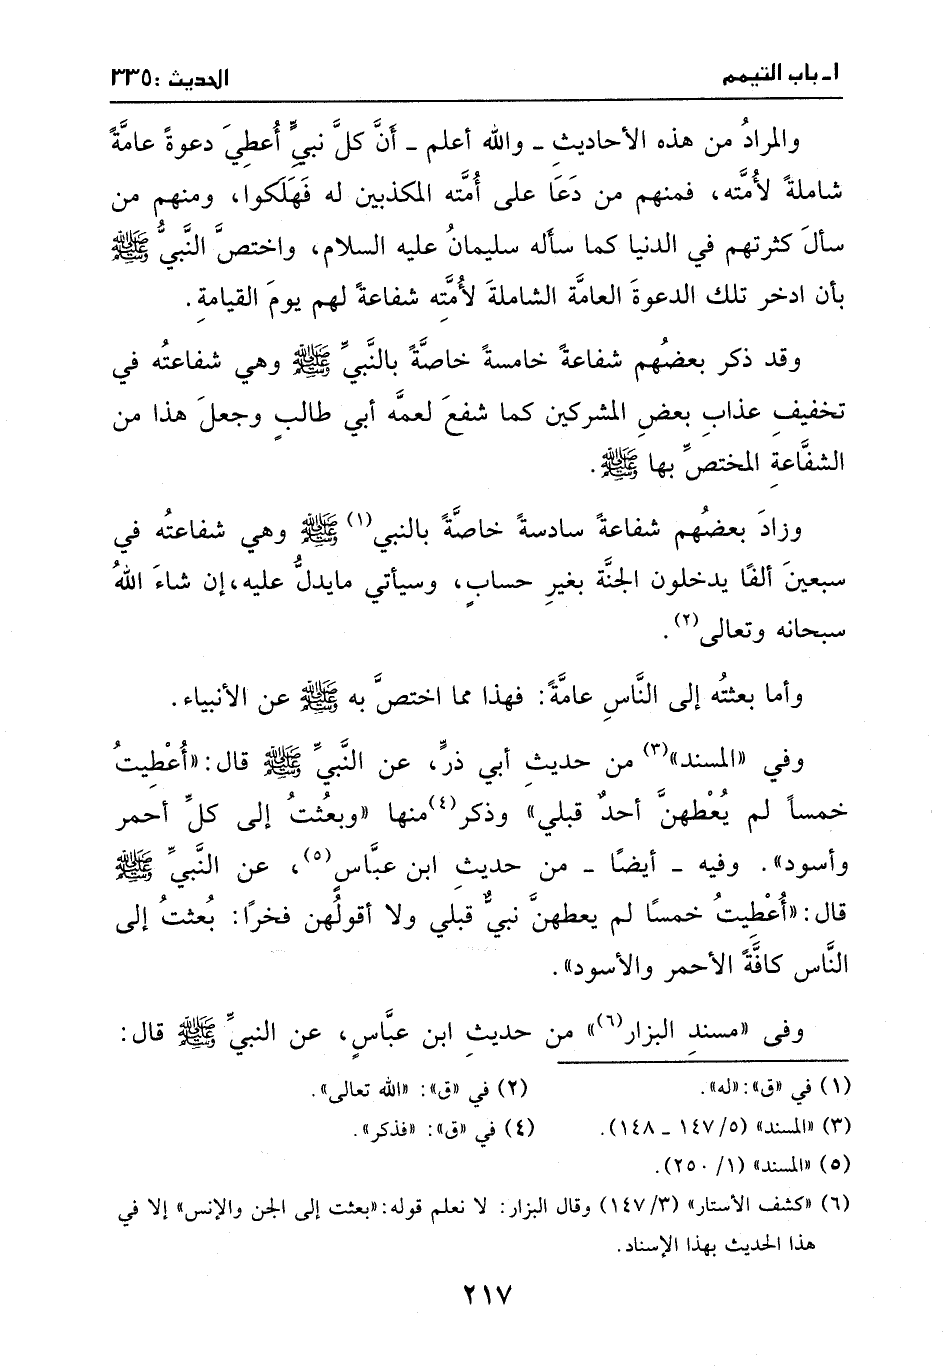 ١ـ باب التيمم
الحديث : ٣٣٥
والمرادُ من هذه الأحاديثِ ـ والله أعلم ـ أنَّ كلَّ نبيٍّ أُعطِيَ دعوةً عامَّةً
شاملةً لأُمَّته، فمنهم من دَعَا على أُمَّته المكذبين له فَهَلَكوا، ومنهم من
سألَ كثرتهم في الدنيا كما سأله سليمانُ عليه السلام، واختصَّ النَّبيُّ ﷺ
بأن ادخر تلك الدعوةَ العامَّة الشاملةَ لأُمَّتِه شفاعةً لهم يومَ القيامةِ.
وقد ذكر بعضُهم شفاعةً خامسةً خاصَّةً بالنَّبيِّ ﷺ وهي شفاعتُه في
تخفيفِ عذابِ بعضِ المشركين كما شفعَ لعمَّه أبي طالبٍ وجعلَ هذا من
الشفَّاعةِ المختصِّ بها ﷺ.
وزادَ بعضُهم شفاعةً سادسةً خاصَّةً بالنبي(١) ﷺ وهي شفاعتُه في
سبعينَ ألفًا يدخلون الجنَّة بغيرِ حسابٍ، وسيأتي مايدلُّ عليه،إن شاءَ اللهُ
سبحانه وتعالى(٢).
وأما بعثتُه إلى النَّاسِ عامَّةً: فهذا مما اختصَّ به ﷺ عن الأنبياء.
وفي «المسند»(٣) من حديثِ أبي ذرٍّ، عن النَّبيِّ ﷺ قال:«أُعْطِيتُ
خمساً لم يُعْطهنَّ أحدٌ قبلي» وذكر(٤)منها «وبعُثتُ إلى كلِّ أحمر
وأسود». وفيه ـ أيضًا ـ من حديثِ ابن عبَّاسٍ(٥)، عن النَّبيِّ ﷺ
قال:«أُعْطِيتُ خمسًا لم يعطهنَّ نبيٌّ قبلي ولا أقولُهن فخرًا: بُعثتُ إلى
النَّاس كافَّةً الأحمر والأسود».
وفى «مسندِ البزار(٦)» من حديثِ ابن عبَّاسٍ، عن النبيِّ ﷺ قال:
(١) في «ق»:«له».
(٢) في «ق»: «الله تعالى».
(٣) «المسند» (٥/ ١٤٧ ـ ١٤٨).
(٤) في «ق»: «فذكر».
(٥) «المسند» (١/ ٢٥٠).
(٦) «كشف الأستار» (٣/ ١٤٧) وقال البزار: لا نعلم قوله:«بعثت إلى الجن والإنس» إلا في
هذا الحديث بهذا الإسناد.
٢١٧